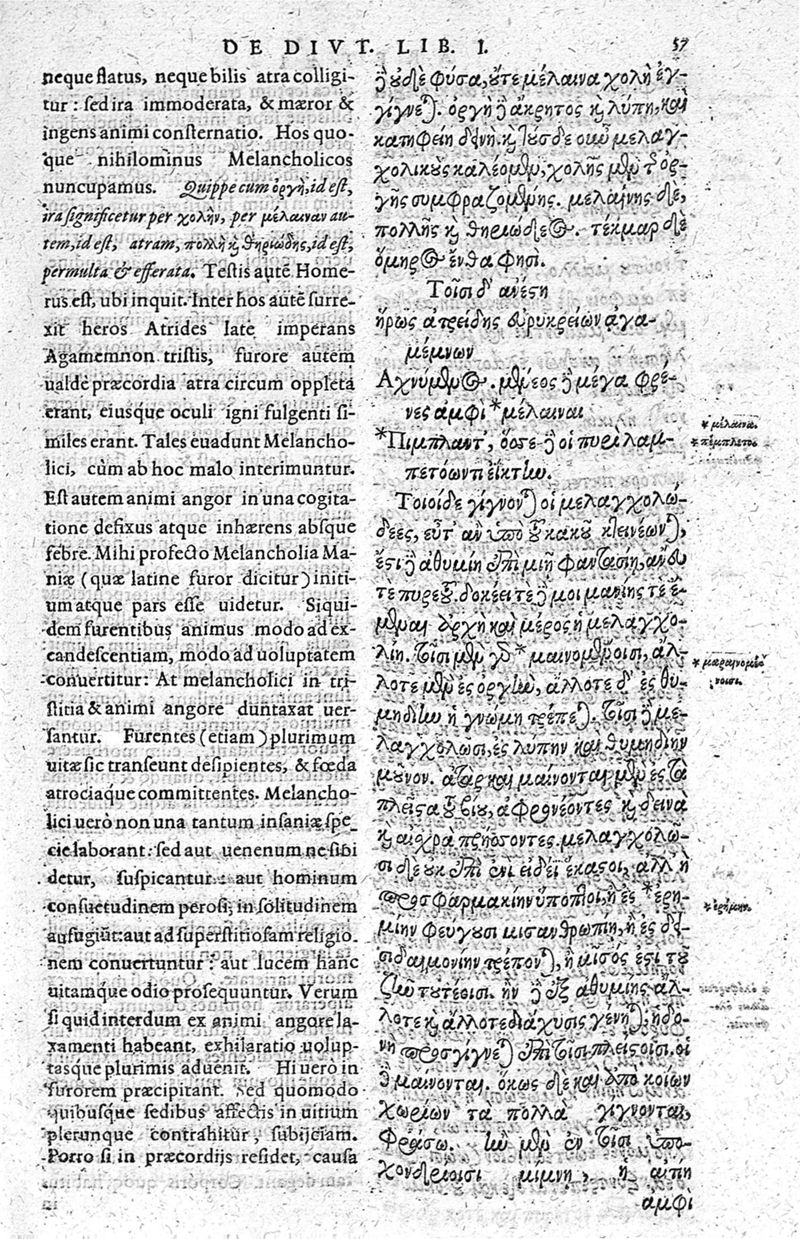 DE DIVT. LIB. I. 57
neque flatus, neque bilis atra colligi-
tur: sed ira immoderata, & mæror &
ingens animi consternatio. Hos quo-
que nihilominus Melancholicos
nuncupamus. Quippe cum ὀργὴ, id est,
ira significetur per χολὴν, per μέλαιναν au-
tem, id est, atram, πολλὴ κỳ θηριώδης, id est,
permulta & efferata. Testis autē Home-
rus est, ubi inquit. Inter hos autē surre-
xit heros Atrides late imperans
Agamemnon tristis, furore autem
ualde præcordia atra circum oppleta
erant, eiusque oculi igni fulgenti si-
miles erant. Tales euadunt Melancho-
lici, cùm ab hoc malo interimuntur.
Est autem animi angor in una cogita-
tione defixus atque inhærens absque
febre. Mihi profecto Melancholia Ma-
niæ (quæ latine furor dicitur) initi-
um atque pars esse uidetur. Siqui-
dem furentibus animus modo ad ex-
candescentiam, modo ad uoluptatem
conuertitur: At melancholici in tri-
stitia & animi angore duntaxat uer-
santur. Furentes (etiam) plurimum
uitæ sic transeunt desipientes, & fœda
atrociaque committentes. Melancho-
lici uerò non una tantum insaniæ spe
cie laborant: sed aut uenenum ne sibi
detur, suspicantur: aut hominum
consuetudinem perosi, in solitudinem
aufugiūt: aut ad superstitiosam religio-
nem conuertuntur: aut lucem hanc
uitamque odio prosequuntur. Verum
si quid interdum ex animi angore la-
xamenti habeant, exhilaratio uolup-
tasque plurimis aduenit. Hi uerò in
furorem præcipitant. Sed quomodo
quibusque sedibus affectis in uitium
plerunque contrahitur, subijciam.
Porro si in præcordijs residet, causa
ἢ οὐδὲ φύσα, οὔτε μέλαινα χολὴ ἐγ-
γίγνεται. ὀργὴ δὲ ἄκρητος καὶ λύπη, καὶ
κατηφείη δεινή. καὶ τούσδε οὖν μελαγ-
χολικοὺς καλέομεν, χολῆς μὲν τῆς ὀρ-
γῆς συμφραζομένης. μελαίνης δὲ,
πολλῆς καὶ θηριώδεος. τέκμαρ δὲ
ὅμηρος ἔνθα φησί.
Τοῖσι δ' ἀνέστη
ἥρως ἀτρείδης εὐρυκρείων ἀγα-
μέμνων
Αχνύμενος. μένεος δὲ μέγα φρέ-
νες ἀμφὶ *μέλαιναι
*Πίμπλαντ', ὄσσε δὲ οἱ πυρὶ λαμ-
πετόωντι ἐίκτην.
Τοιοίδε γίγνονται οἱ μελαγχολώ-
δεες, εὖτ' ἂν ὑπὸ τοῦ κακοῦ κλεινέωνται,
ἔστι δὲ ἀθυμίη ἐπὶ μιῇ φαντασίῃ, ἄνευ
τε πυρετοῦ. δοκέει τε δέ μοι μανίης τε ἔ-
μεναι ἀρχὴ καὶ μέρος ἡ μελαγχο-
λίη. τοῖσι μὲν γὰρ *μαινομένοισι, ἄλ-
λοτε μὲν ἐς ὀργὴν, ἄλλοτε δ' ἐς θυ-
μηδίην ἡ γνώμη τρέπεται. τοῖσι δὲ με-
λαγχολῶσι, ἐς λύπην καὶ θυμηδίην
μοῦνον. ἀτὰρ καὶ μαίνονται μὲν ἐς τὰ
πλεῖστα τοῦ βίου, ἀφρονέοντες καὶ δεινὰ
καὶ αἰσχρὰ πρήσσοντες. μελαγχολῶ-
σι δὲ οὐκ ἐπὶ ἑνὶ εἴδεϊ ἕκαστοι, ἀλλ' ἢ
πρὸς φαρμακίην ὕποπτοι, ἢ ἐς *ἐρη-
μίην φεύγουσι μισανθρωπίῃ, ἢ ἐς δει-
σιδαιμονίην τρέπονται, ἢ μῖσός ἐστι τοῦ
ζῆν τουτέοισι. ἢν δὲ ἐξ ἀθυμίης ἄλ-
λοτε καὶ ἄλλοτε διάχυσις γένηται, ἡδο-
νὴ προσγίγνεται ἐπὶ τοῖσι πλείστοισι. οἱ
δὲ μαίνονται. ὅκως δὲ καὶ ἀπὸ κοίων
χωρίων τὰ πολλὰ γίγνονται,
φράσω. ἢν μὲν ἐν τοῖσι ὑπο-
χονδρίοισι μίμνῃ, ἡ αἰτίη
ἀμφὶ
*μέλαιναι.
*πίμπλετο.
*μαραινομέ-
νοισι.
*ἐρήμην.